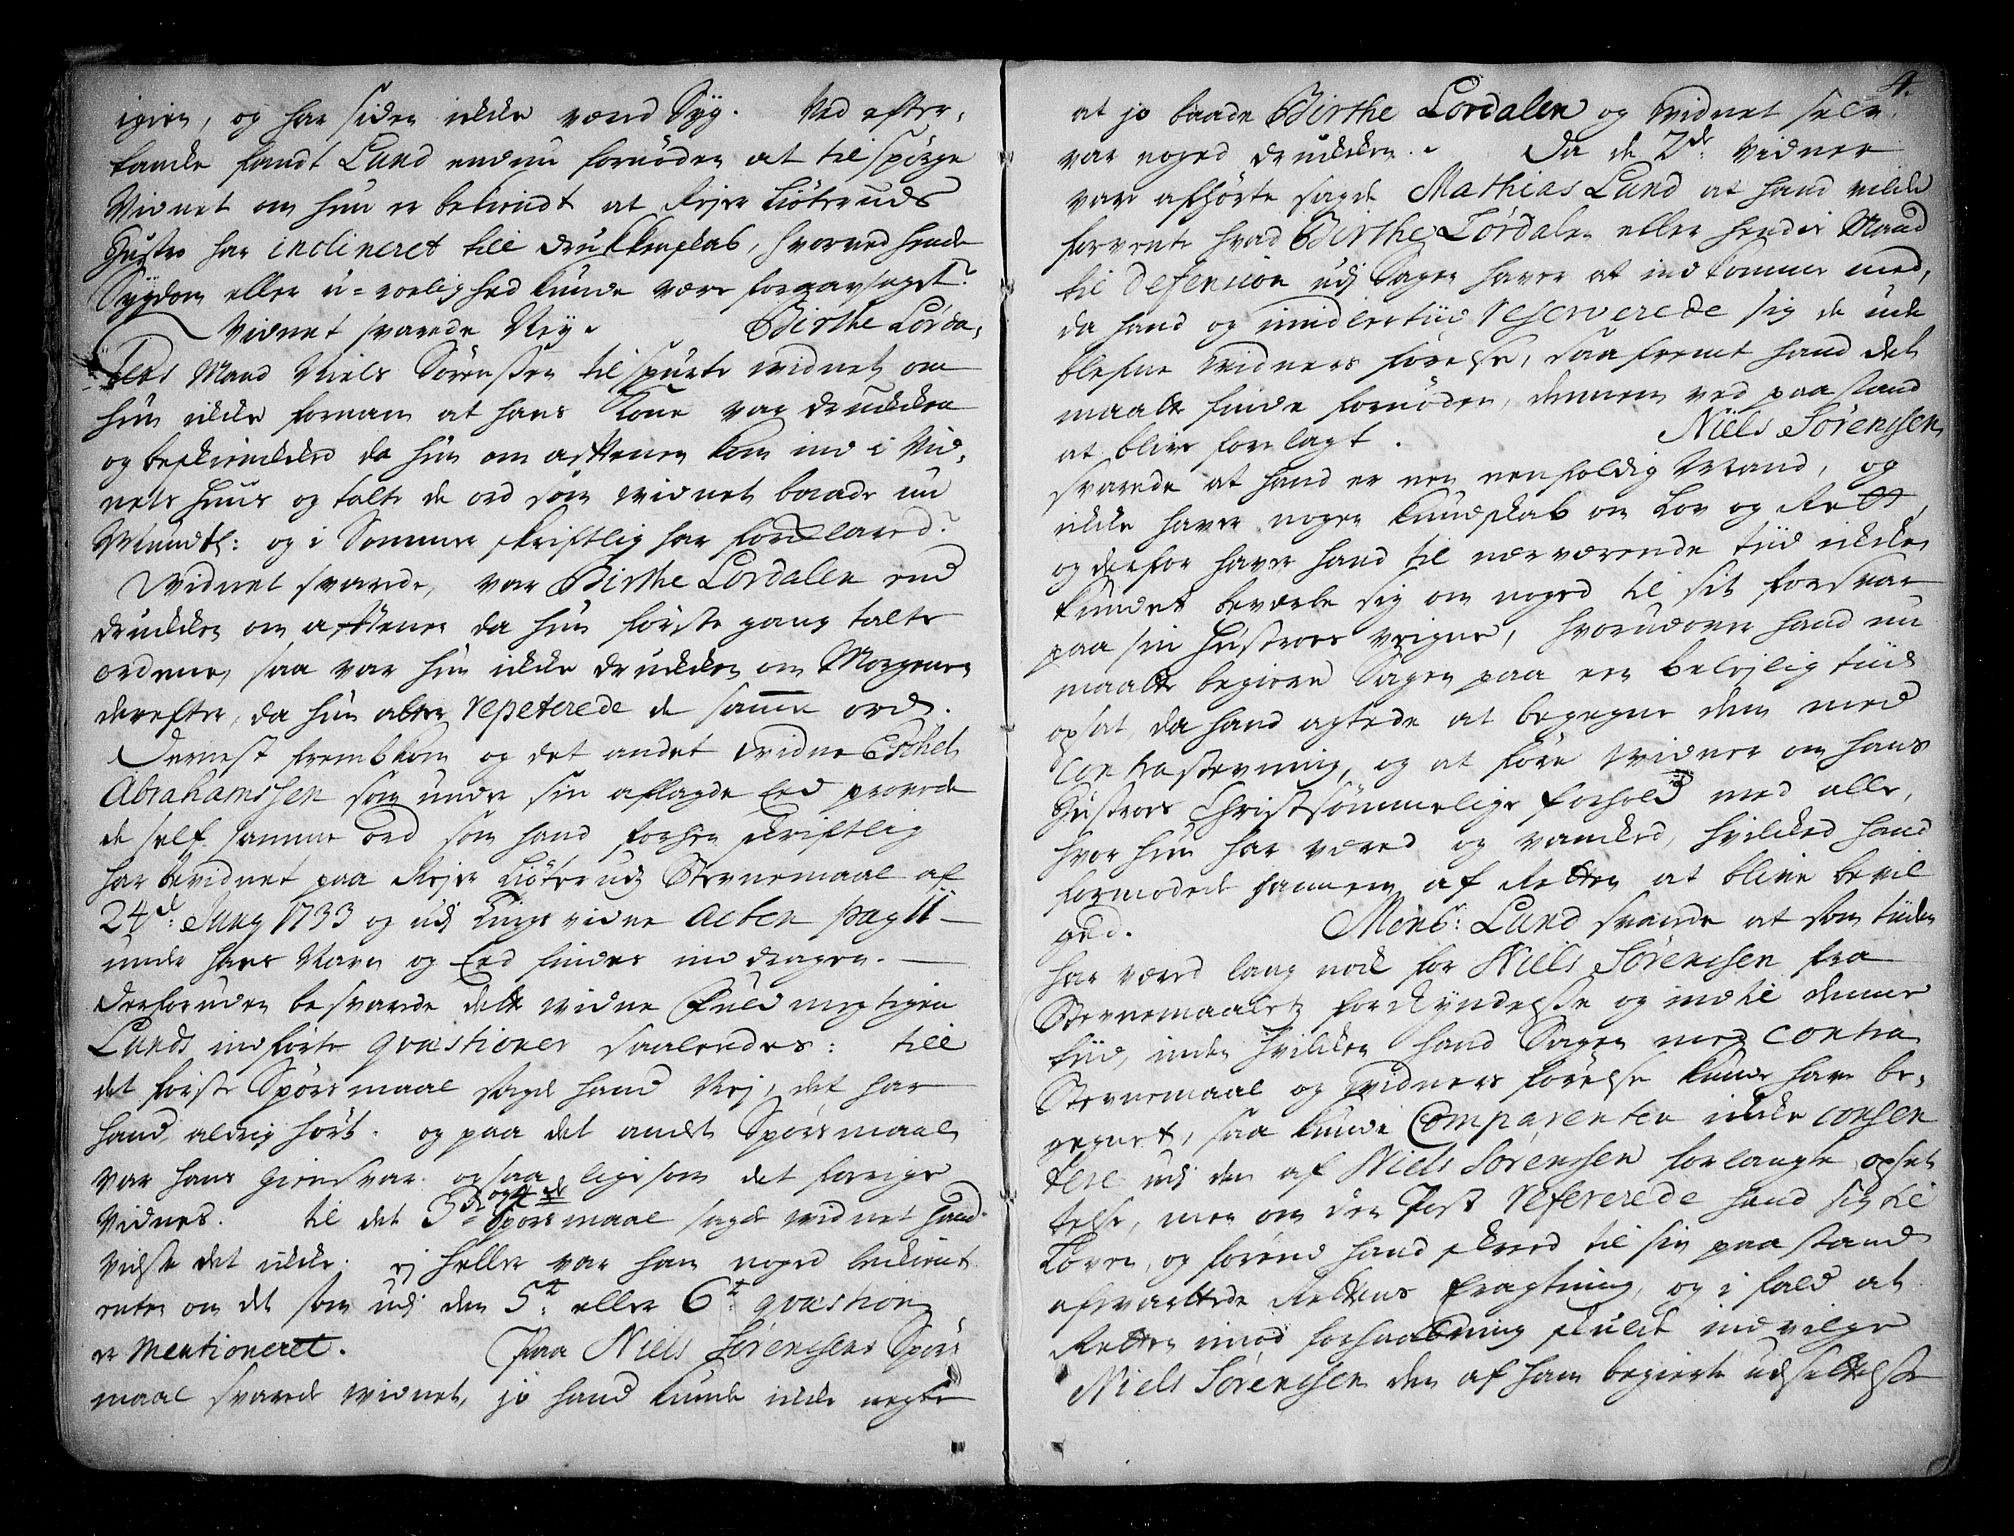 igien, og har siden icke værd Syg. Ved efter,
tancke fandt Lund endnu fornøden at til spørge
Vidnet om hun er bekiendt at Rejer Kiøteruds
Hustro har inclineret till drukkenskab, hvorved hende
Sygdom eller u-roelighed kunde være foraarsaget?
Vidnet svarede Nej. Birthe Lørda,
lens Mand Niels Sørenssen tilspurte vidnet om
hun icke fornam at hans Kone var drucken
og beskiencked da hun om aftenen kom ind i Vid,
nets huus og talte de ord som vidnet baade nu
Mundtl: og i Sommer skriftlig har forklared?
Vidnet svarede, var Birthe Lordalen end
drucken om aftenen da hun første gang talte
ordene, saa var hun icke drucken om Morgenen
derefter, da hun atter repeterede de samme ord.
Dernest fremkom og det andet vidne Eskel
Abrahamssen som under sin aflagde Eed provede
de self samme ord som hand forhen skriftlig
har bevidnet paa Rejer Kiøteruds Stevnemaal af
24d: Juny 1733 og udj Tings vidne Acten pag 11
under hans Navn og Eed findes inddragen.
Desforuden besvarede dette vidne Fuldmegtigen
Lunds indførte qvæstioner saaledes: till
det første Spørsmaal sagde hand Nej, det har
hand aldrig hørt. og paa det andet Spørsmaal
var hans giensvar ogsaa ligesom det forrige
Vidnes. til det 3de og 4de Spørsmaal sagde vidnet hand
vidste det icke. ej heller var ham noged bekient
enten om det som udj den 5te eller 6te qvæstion
er mentioneret. Paa Niels Sørensens Spørs
maal svarede vidnet, jo hand kunde icke negte
4.
at jo baade Birthe Lordalen og vidnet selv
var noged drucken. Da de 2de vidner
vare afhørte sagde Mathias Lund at hand vilde
forvente hvad Birthe Lørdalen eller hendes Mand
til Defension udj Sagen haver at indkomme med,
da hand og imidlertiid reserverede sig de ude
blefne vidners førelse, saafremt hand det
maatte finde fornøden, dennem ved paastand
at blive forelagt. Niels Sørenssen
svarede at hand er een eenfoldig Mand, og
icke haver nogen kundskab om Lov og Rett,
og derfor haver hand til nærværende tiid icke
kundet beværbe sig om noged til sit forsvar
paa sin hustroes veigne, hvorudover hand nu
maatte begiere Sagen paa een belejlig tiid
opsat, da hand agtede at begegne dem med
Contrastevning, og at føre vidner om hans
Hustroes Christsømmelige forhold med alle,
hvor hun har været og vancked, hvilcked hand
formodede hannem af Retten at blive bevil
ged. Mons: Lund svarede at som tiiden
har værd lang nock for Niels Sørenssen fra
Stevnemaalets forkyndelse og indtil denne
tiid, inden hvilcken hand Sagen med Contra
Stevnemaal og vidners førelse kunde have be,
gegnet, saa kunde Comparenten icke consen
tere udj den af Niels Sørenssen forlangte opset
telse, men om den Post refererede hand sig til
Loven, og førend hand skreed til sin paastand
afvarttede Rettens Eragtning, og i fald at
Retten imod forhaabning skulde indvilge
Niels Sørenssen den af ham begierte udsettelse